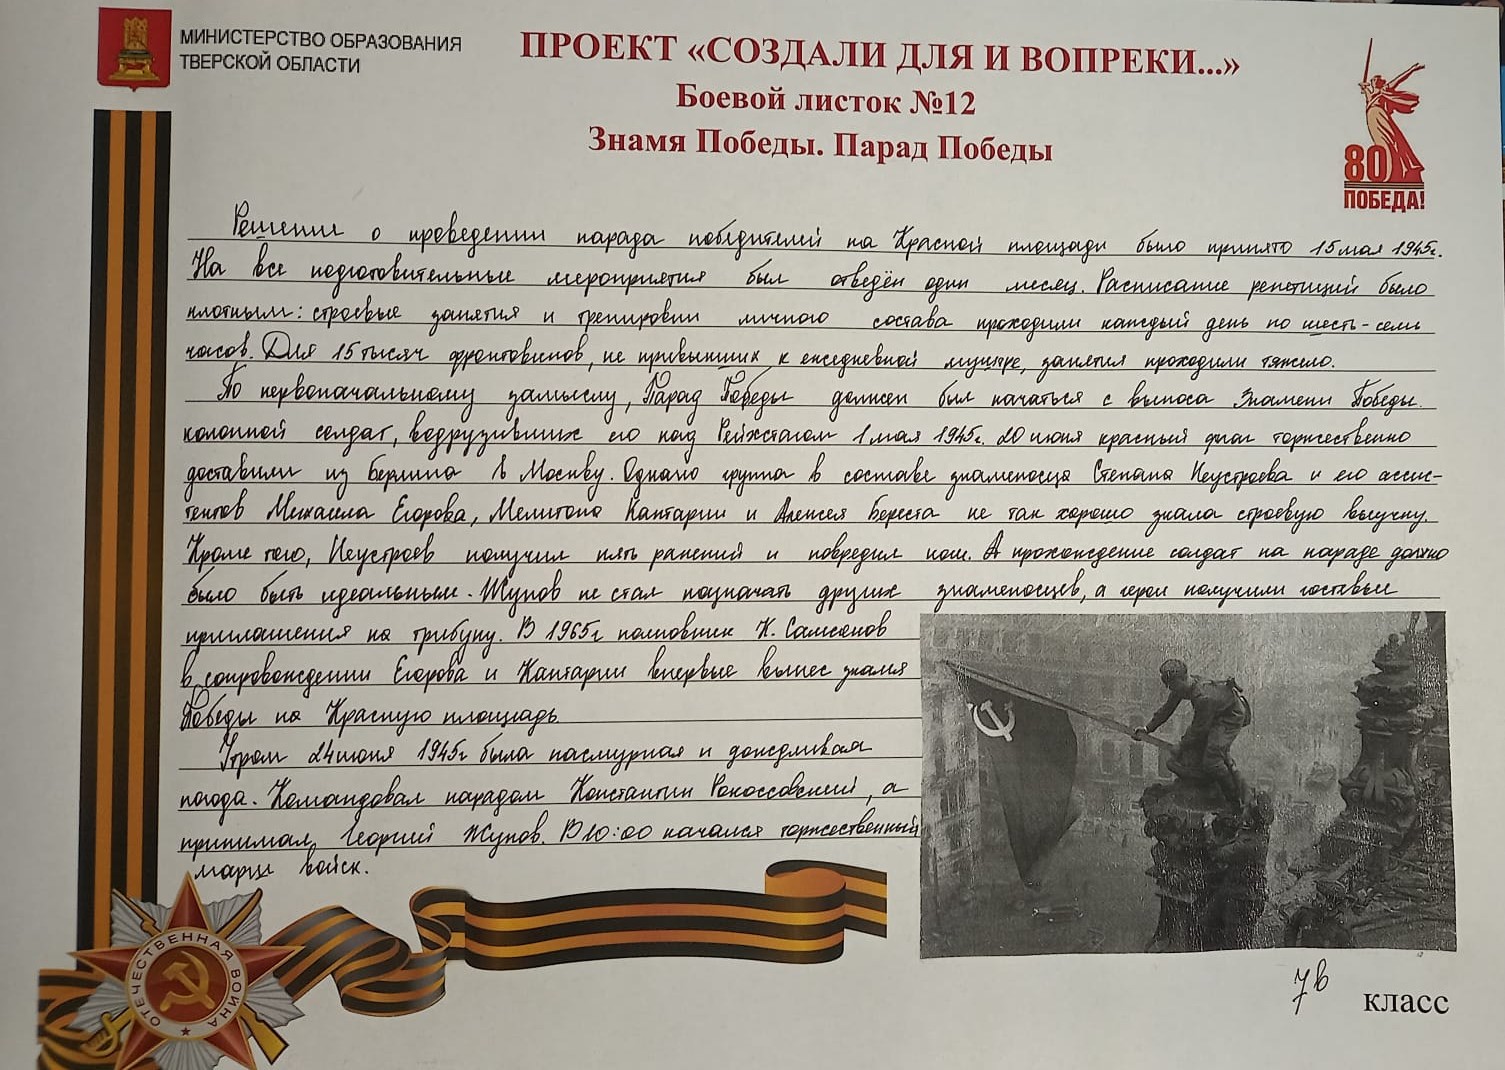 МИНИСТЕРСТВО ОБРАЗОВАНИЯ
ТВЕРСКОЙ ОБЛАСТИ
ПРОЕКТ «СОЗДАЛИ ДЛЯ И ВОПРЕКИ...»
Боевой листок №12
Знамя Победы. Парад Победы
80
ПОБЕДА!
Решение о проведении парада победителей на Красной площади было принято 15 мая 1945г.
На все подготовительные мероприятия был отведён один месяц. Расписание репетиций было
плотным: строевые занятия и тренировки личного состава проходили каждый день по шесть-семь
часов. Для 15 тысяч фронтовиков, не привыкших к ежедневной муштре, занятия проходили тяжело.
По первоначальному замыслу, Парад Победы должен был начаться с выноса Знамени Победы
колонной солдат, водрузивших его над Рейхстагом 1 мая 1945г. 20 июня красный флаг торжественно
доставили из Берлина в Москву. Однако группа в составе знаменосца Степана Неустроева и его ассис-
тентов Михаила Егорова, Мелитона Кантарии и Алексея Береста не так хорошо знала строевую выучку.
Кроме того, Неустроев получил пять ранений и повредил ноги. А прохождение солдат на параде должно
было быть идеальным. Жуков не стал назначать других знаменосцев, а герои получили гостевые
приглашения на трибуну. В 1965г полковник К. Самсонов
в сопровождении Егорова и Кантарии впервые вынес знамя
Победы на Красную площадь
Утром 24 июня 1945г была пасмурная и дождливая
погода. Командовал парадом Константин Рокоссовский, а
принимал Георгий Жуков. В 10:00 начался торжественный
марш войск.
ОТЕЧЕСТВЕННАЯ ВОЙНА
7в класс